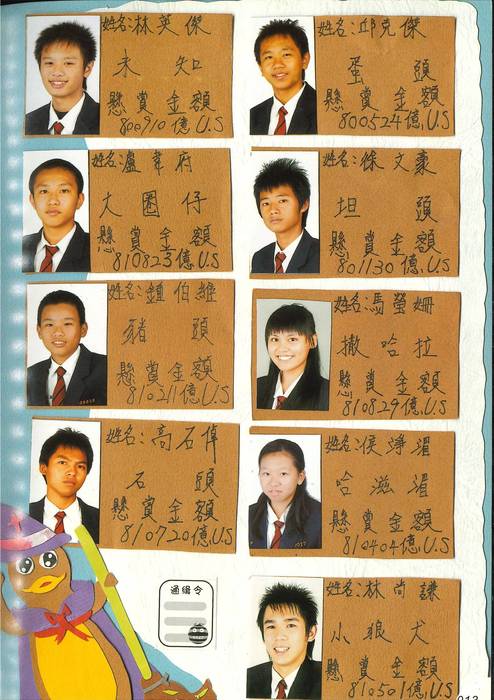 姓名:林英傑
未知
懸賞金額
800910億U.S
姓名:邱克傑
蛋頭
懸賞金額
800524億U.S
姓名:盧韋府
大圈仔
懸賞金額
810823億U.S
姓名:徐文豪
坦頭
懸賞金額
801130億U.S
姓名:鍾伯維
豬頭
懸賞金額
810211億U.S
姓名:馮螢姍
撒哈拉
懸賞金額
810829億U.S
姓名:高石倬
石頭
懸賞金額
810720億U.S
姓名:侯淨湄
哈滋湄
懸賞金額
810404億U.S
通緝令
姓名:林尚謙
小狼犬
懸賞金額
810501億U.S
013